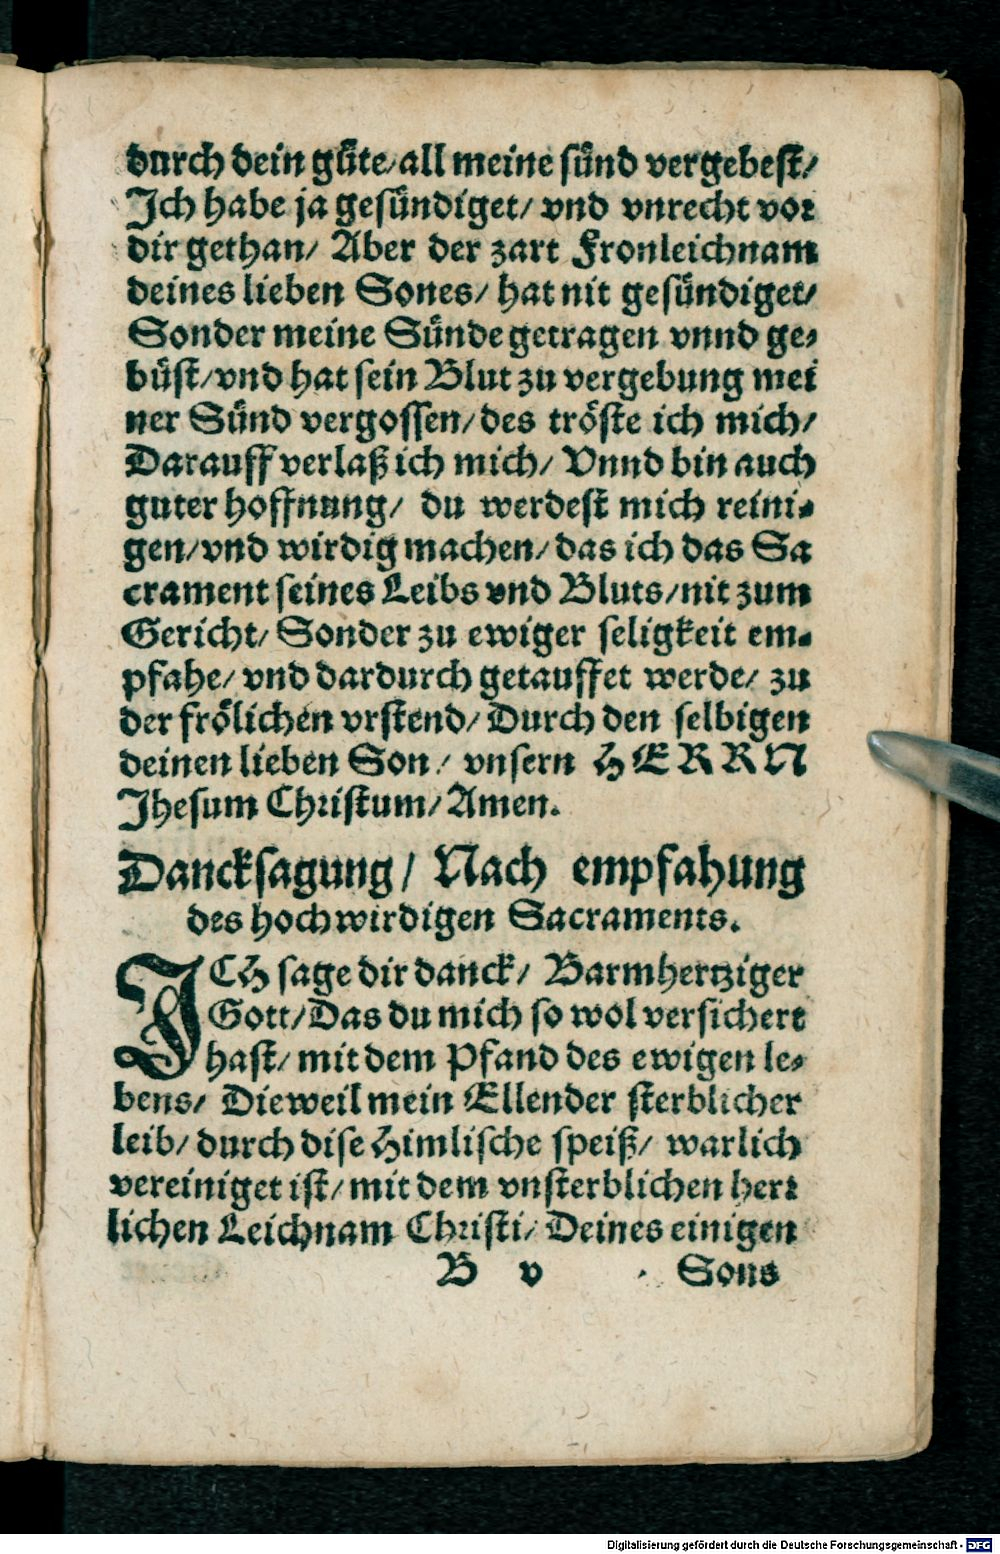 durch dein guͤte/all meine suͤnd vergebest/
Ich habe ja gesuͤndiget/ vnd vnrecht vor
dir gethan/ Aber der zart Fronleichnam
deines lieben Sones/ hat nit gesuͤndiget/
Sonder meine Suͤnde getragen vnnd ge-
buͤst/vnd hat sein Blut zu vergebung mei
ner Suͤnd vergossen/des troͤste ich mich/
Darauff verlaß ich mich/ Vnnd bin auch
guter hoffnung/ du werdest mich reini-
gen/vnd wirdig machen/das ich das Sa
crament seines Leibs vnd Bluts/nit zum
Gericht/ Sonder zu ewiger seligkeit em-
pfahe/ vnd dardurch getauffet werde/ zu
der froͤlichen vrstend/ Durch den selbigen
deinen lieben Son/ vnsern HERRN
Jhesum Christum/ Amen.
Dancksagung/ Nach empfahung
des hochwirdigen Sacraments.
ICH sage dir danck/ Barmhertziger
Gott/Das du mich so wol versichert
hast/ mit dem Pfand des ewigen le-
bens/ Dieweil mein Ellender sterblicher
leib/ durch dise Himlische speiß/ warlich
vereiniget ist/ mit dem vnsterblichen herr
lichen Leichnam Christi/ Deines einigen
B v Sons
Digitalisierung gefördert durch die Deutsche Forschungsgemeinschaft - DFG